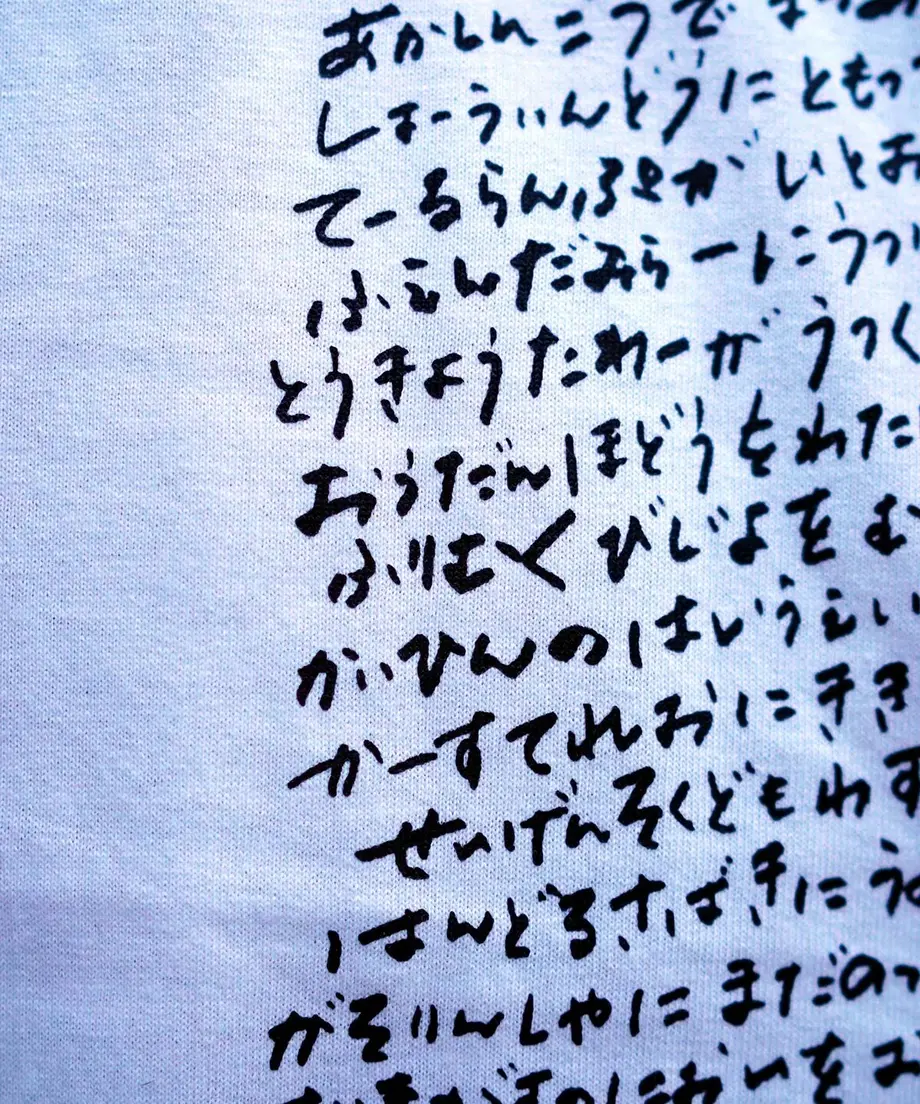 あかしんこうで
しょーうぃんどうにともっ
てーるらんぷをがいとお
ふぇんだみらーにうつ
とうきょうたわーがうつく
おうだんほどうをわた
ふりむくびじょをむ
がいひんのはいうぇい
かーすてれおにきき
せいげんそくどもわす
はんどるさばきにう
がそりんしゃにまだのっ